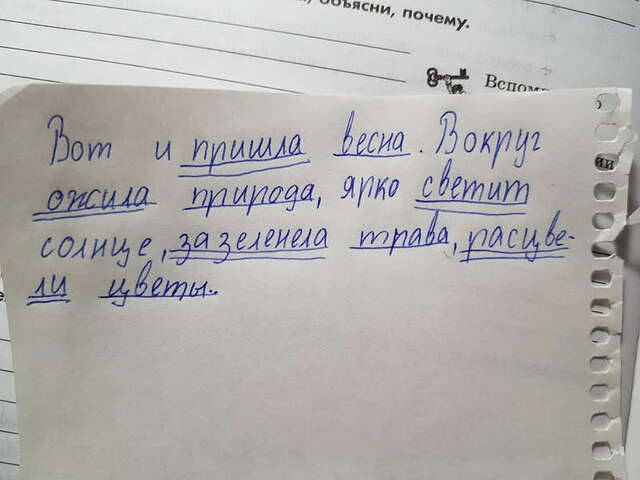 объясни, почему.
Вспом
Вот и пришла весна. Вокруг
ожила природа, ярко светит
солнце, зазеленела трава, расцве-
ли цветы.